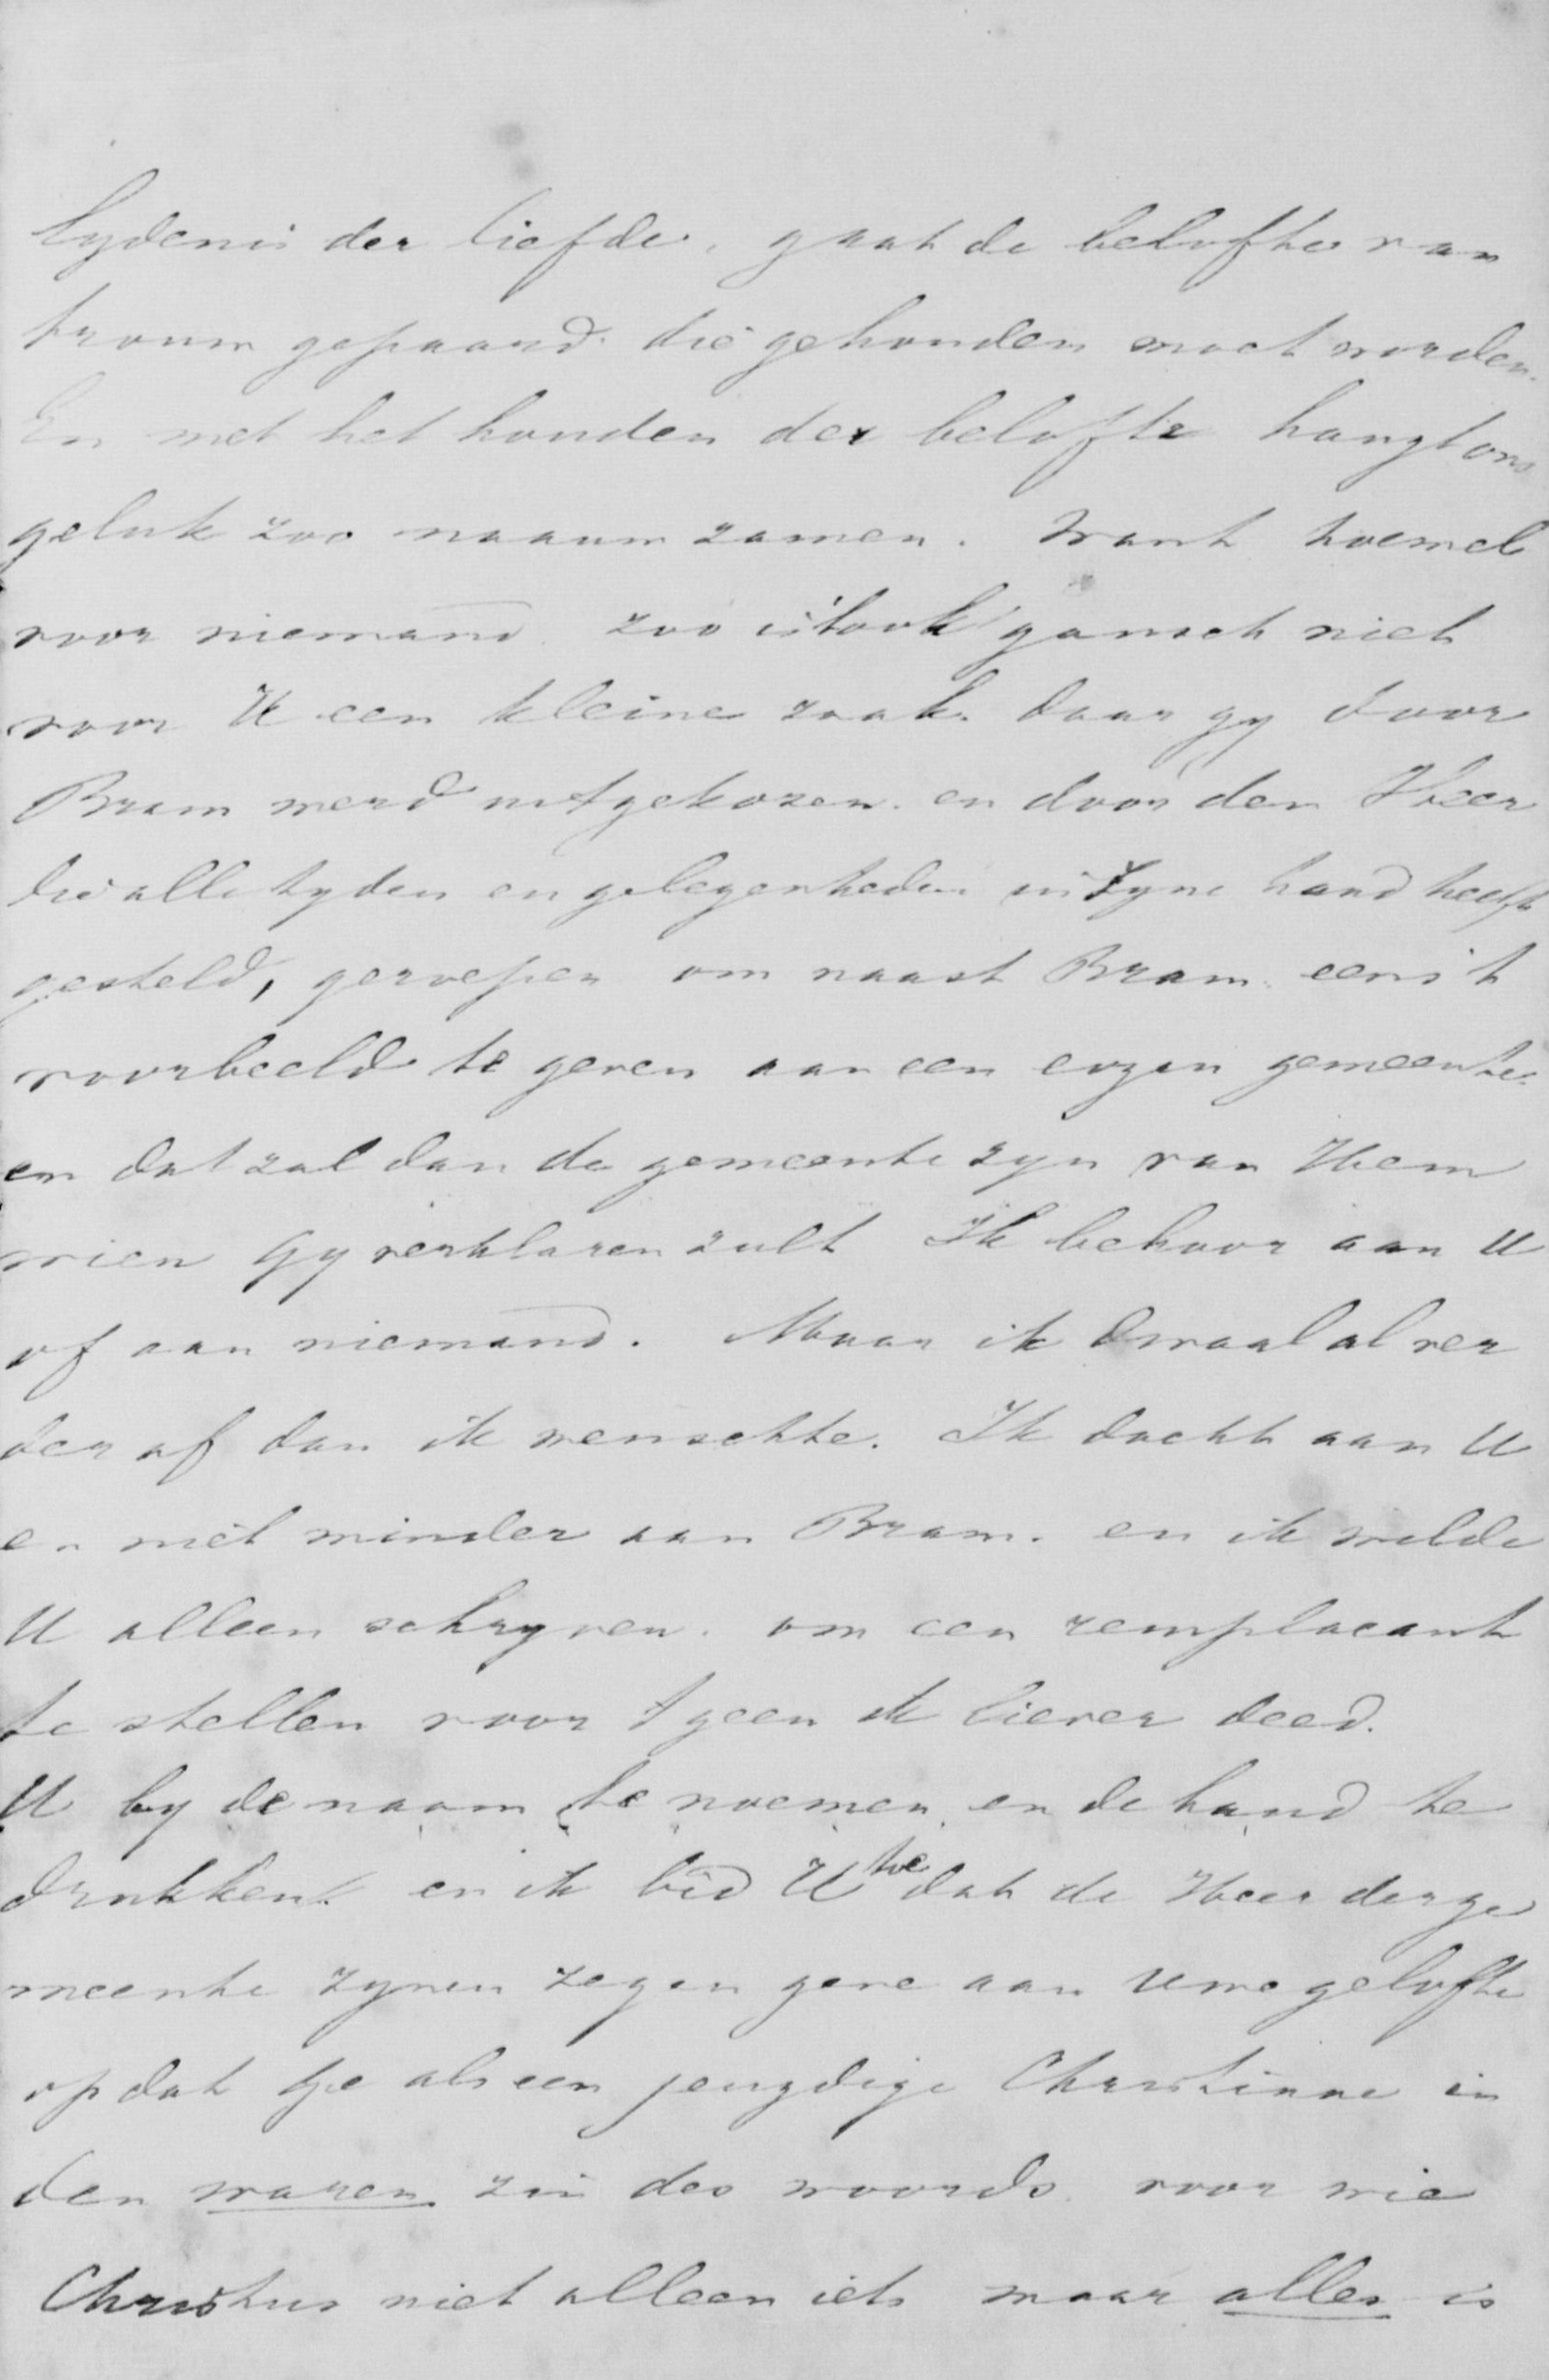 lydenis der liefde, gaat de belofte van
trouw gepaard. die gehouden moet worden.
En met het houden der belofte hangt ons
geluk zoo naauw zamen. Want hoewel
voor niemand zoo is 't ook gansch niet
voor U een kleine zaak. daar gy door
Bram werd uitgekozen. en door den Heer
die alle tyden en gelegenheden in Zyne hand heeft
gesteld, geroepen om naast Bram eens 't
voorbeeld te geven aan een eigen gemeente.
en dat zal dan de gemeente zyn van Hem
wien Gy verklaren zult Ik behoor aan U
of aan niemand. Maar ik dwaal al ver
der af dan ik wenschte. Ik dacht aan U
en niet minder aan Bram. en ik wilde
U alleen schryven. om een remplacant
te stellen voor 't geen ik liever deed.
U by de naam te noemen en de hand te
drukken. en ik bid U toe dat de Heer der ge
meente zynen zegen geve aan uwe gelofte
opdat Ge als een jeugdige Christinne in
den waren zin des woords. voor wie
Christus niet alleen iets maar alles is